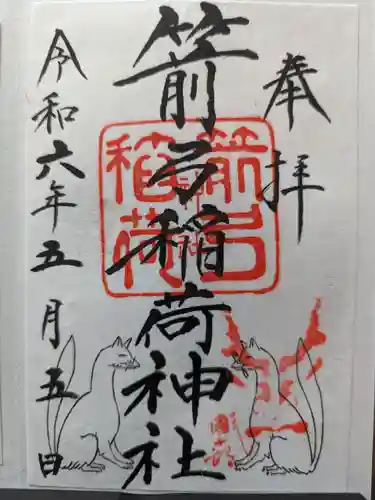 奉拝
箭弓稲荷神社
令和六年五月五日
箭弓
稲荷